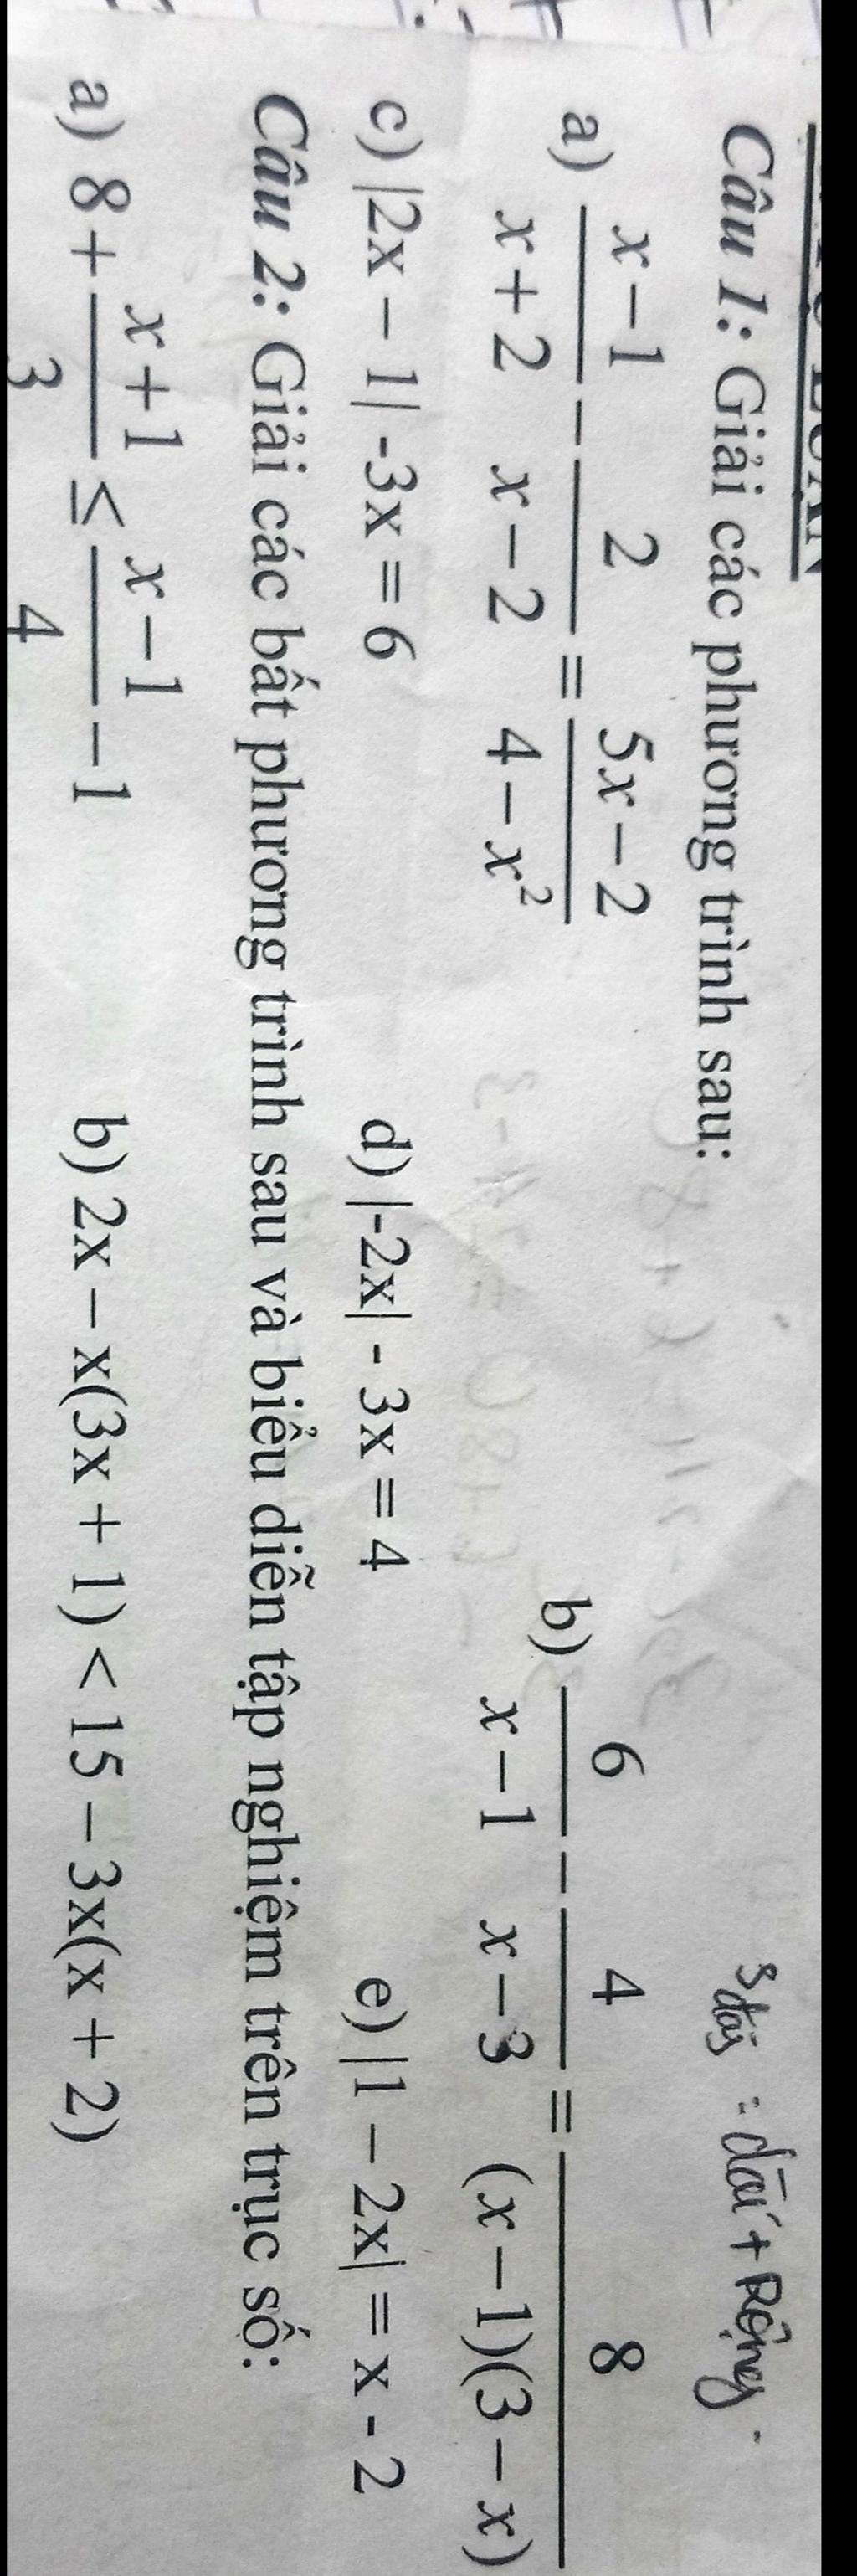 Câu 1: Giải các phương trình sau:
3đãy = dài + Rộng.
a) \frac{x-1}{x+2} - \frac{2}{x-2} = \frac{5x-2}{4-x^2} b) \frac{6}{x-1} - \frac{4}{x-3} = \frac{8}{(x-1)(3-x)}
c) |2x – 1| -3x = 6 d) |-2x| - 3x = 4 e) |1 – 2x| = x - 2
Câu 2: Giải các bất phương trình sau và biểu diễn tập nghiệm trên trục số:
a) 8 + \frac{x+1}{3} ≤ \frac{x-1}{4} - 1 b) 2x – x(3x + 1) < 15 – 3x(x + 2)